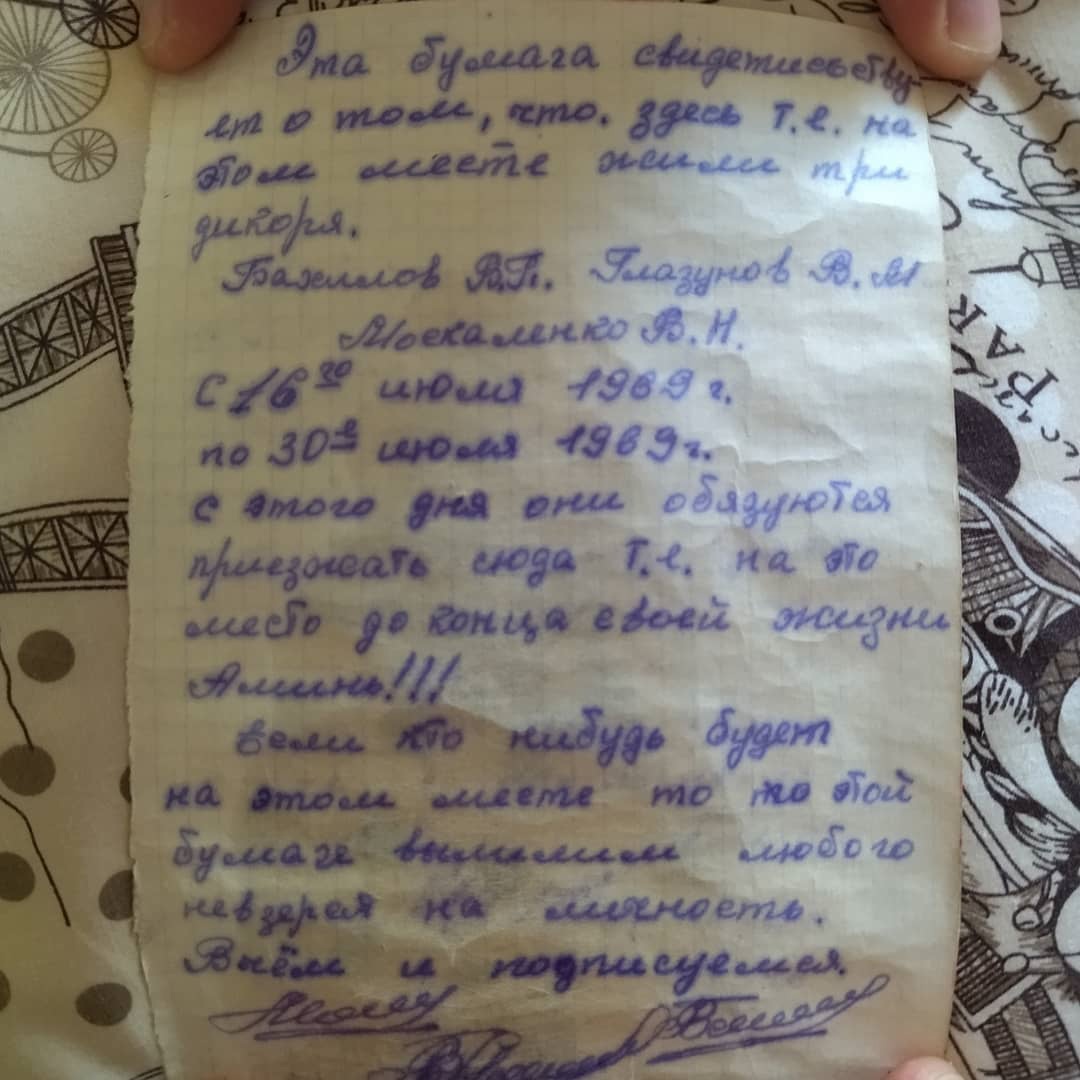 Эта бумага свидетисьству
ет о том, что. здесь т.е. на
этом месте жили три
дикоря.
Бахилов В.П. Глазунов В.М
Москаленко В.Н.
С 16го июля 1969 г.
по 30е июля 1969 г.
с этого дня они обязуются
приезжать сюда т.е. на это
место до конца своей жизни
Аминь!!!
Если кто нибудь будет
на этом месте то по этой
бумаге вышлим любого
невзерая на личность.
В чём и подписуемся.
PAR